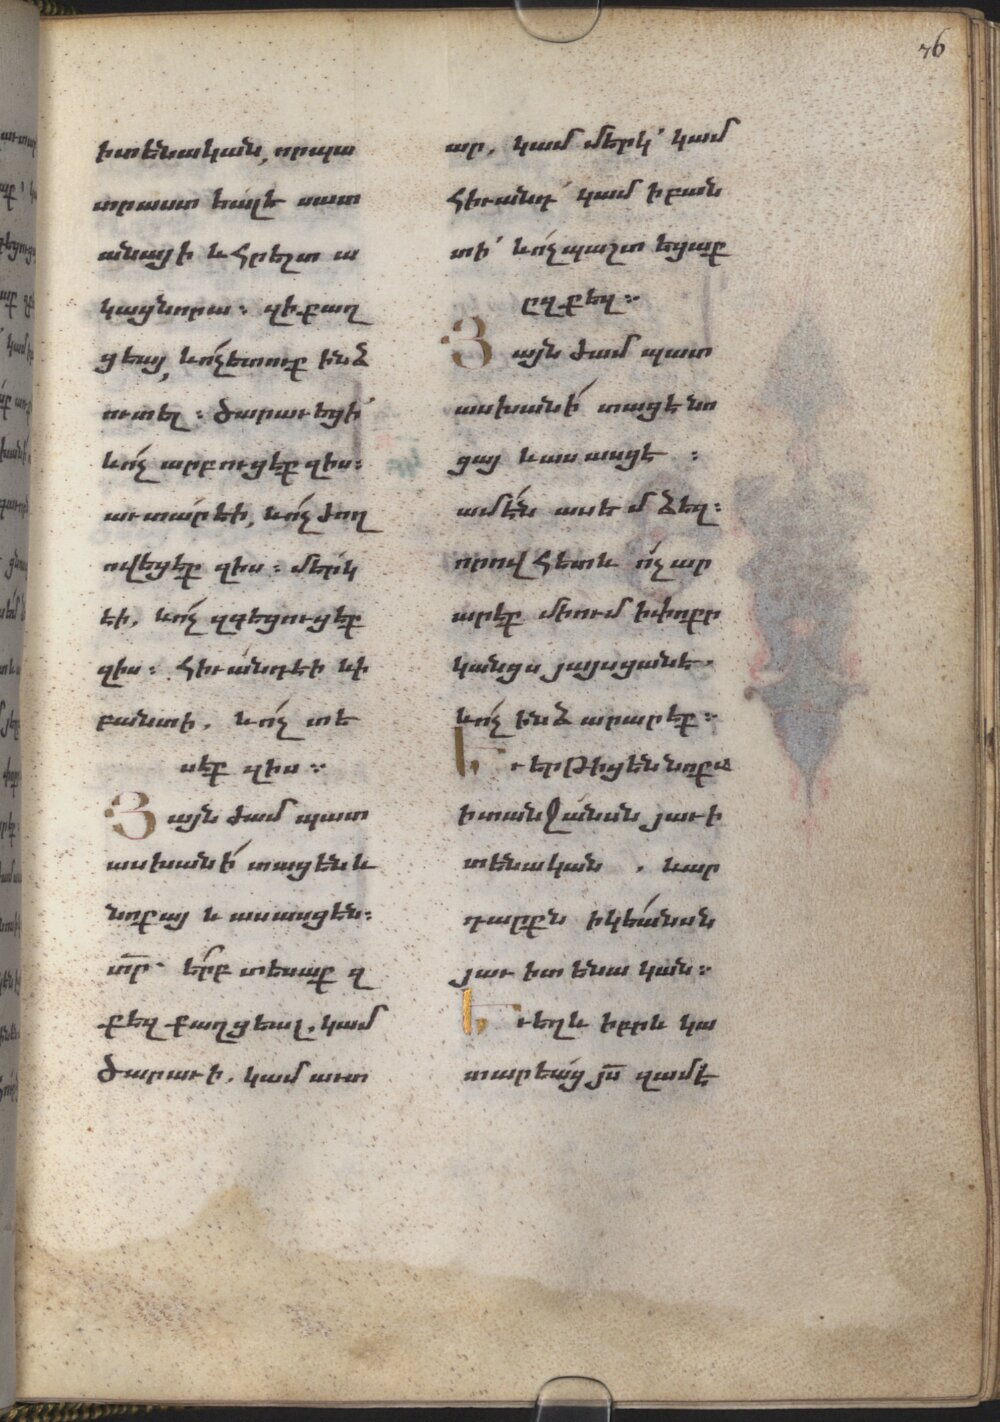 76
իտենական, որպա
տրաստ եալէ սատ
անայի և հրեշտ ա
կացնորա : զի քաղ
ցեայ, և ո՛չ ետուք ինձ
ուտել : ծարաւ եցի՛
և ո՛չ արբուցէք զիս :
աւտար եի, և ո՛չ ժող
ովեցէք զիս : մերկ
էի, և ո՛չ զգեցուցէք
զիս : հիւանդ եի և ի
բանտի, և ո՛չ տե
սէք զիս :
Յայն ժամ պատ
ասխանի՛ տացեն և
նոքայ և ասասցեն :
տր՟ երբ տեսաք զ
քեզ քաղցեալ, կամ
ծարաւի, կամ աւտ
ար, կամ մերկ՛ կամ
հիւանդ՛ կամ ի բան
տի՛ և ո՛չ պաշտ եցաք
ըզքեզ :
Յայն ժամ պատ
ասխանի՛ տացէ նո
ցայ և աս ասցե :
ամէ՛ն ասեմ ձեզ :
որովհետև ո՛չ ար
արէք միում ի փոքր
կանցս յայսցանե,
և ո՛չ ինձ արարէք :
Եւ երթիցեն նոքա
ի տանջանսն յաւի
տենական , և ար
դարքն ի կեանսն
յաւ իտ ենա կան :
Եւ եղև իբրև կա
տարեաց յս՟ զամէ